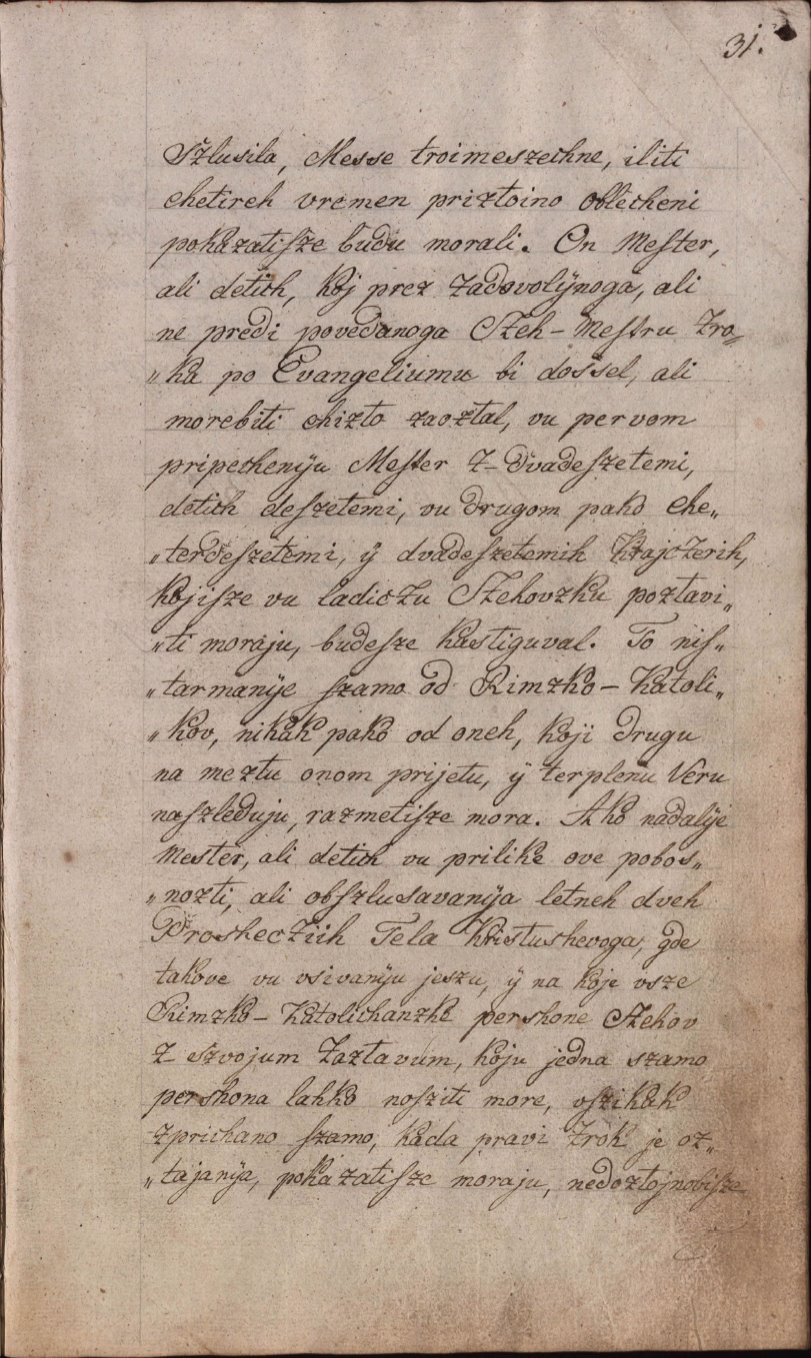 31.
Szlusila, Messe troimeszechne, iliti
chetireh vremen priztoino oblecheni
pokazatiſze budu morali. On Meſter,
ali detich, koj prez zadovolÿnoga, ali
ne predi povedanoga Czeh-Meſtru Zro„
„ka po Evangeliumu bi doſsel, ali
morebiti chizto zaoztal, vu pervom
pripechenÿu Meſter z-dvadeſzetemi,
detich deſzetemi, vu drugom pako che„
„terdeſzetemi, ÿ dvadeſzetemih Krajczerih,
kojiſze vu ladiczu Czehovzku poztavi„
„ti moraju, budeſze kastiguval. To niſ„
„tarmanÿe ſzamo od Rimzko-Katoli„
„kov, nikak pako od oneh, koji drugu
na meztu onom prijetu, ÿ terplenu Veru
naſzleduju, razmetiſze mora. Ako nadalÿe
Meſter, ali detich vu prilike ove pobos„
„nozti, ali obſzlusavanÿa letneh dveh
Proshecziih Tela Kristushevoga, gde
takove vu vsivanÿu jeszu, ÿ na koje vsze
Rimzko-Katolichanzke pershone Czehov
z-szvojum Zaztavum, koju jedna szamo
pershona lahko noſziti more, vſzikak
zprichano ſzamo, kada pravi zrok je oz„
„tajanÿa, pokazatiſze moraju, nedoztojnobiſze